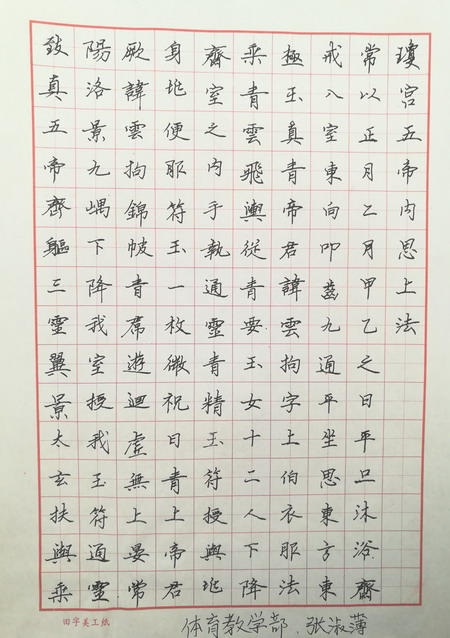 瓊宮五帝內思上法
常以正月二月甲乙之日平旦沐浴齋
戒入室東向叩齒九通平坐思東方東
極玉真青帝君諱雲拘字上伯衣服法
乘青雲飛輿從青要玉女十二人下降
齋室之內手執通靈青精玉符授與兆
身兆便服符玉一枚微祝曰青上帝君
厥諱雲拘錦帔青帬遊迴虛無上晏常
陽洛景九嵎下降我室授我玉符通靈
致真五帝齊軀三靈翼景太玄扶輿乘
田字美工纸
体育教学部 张淑薄